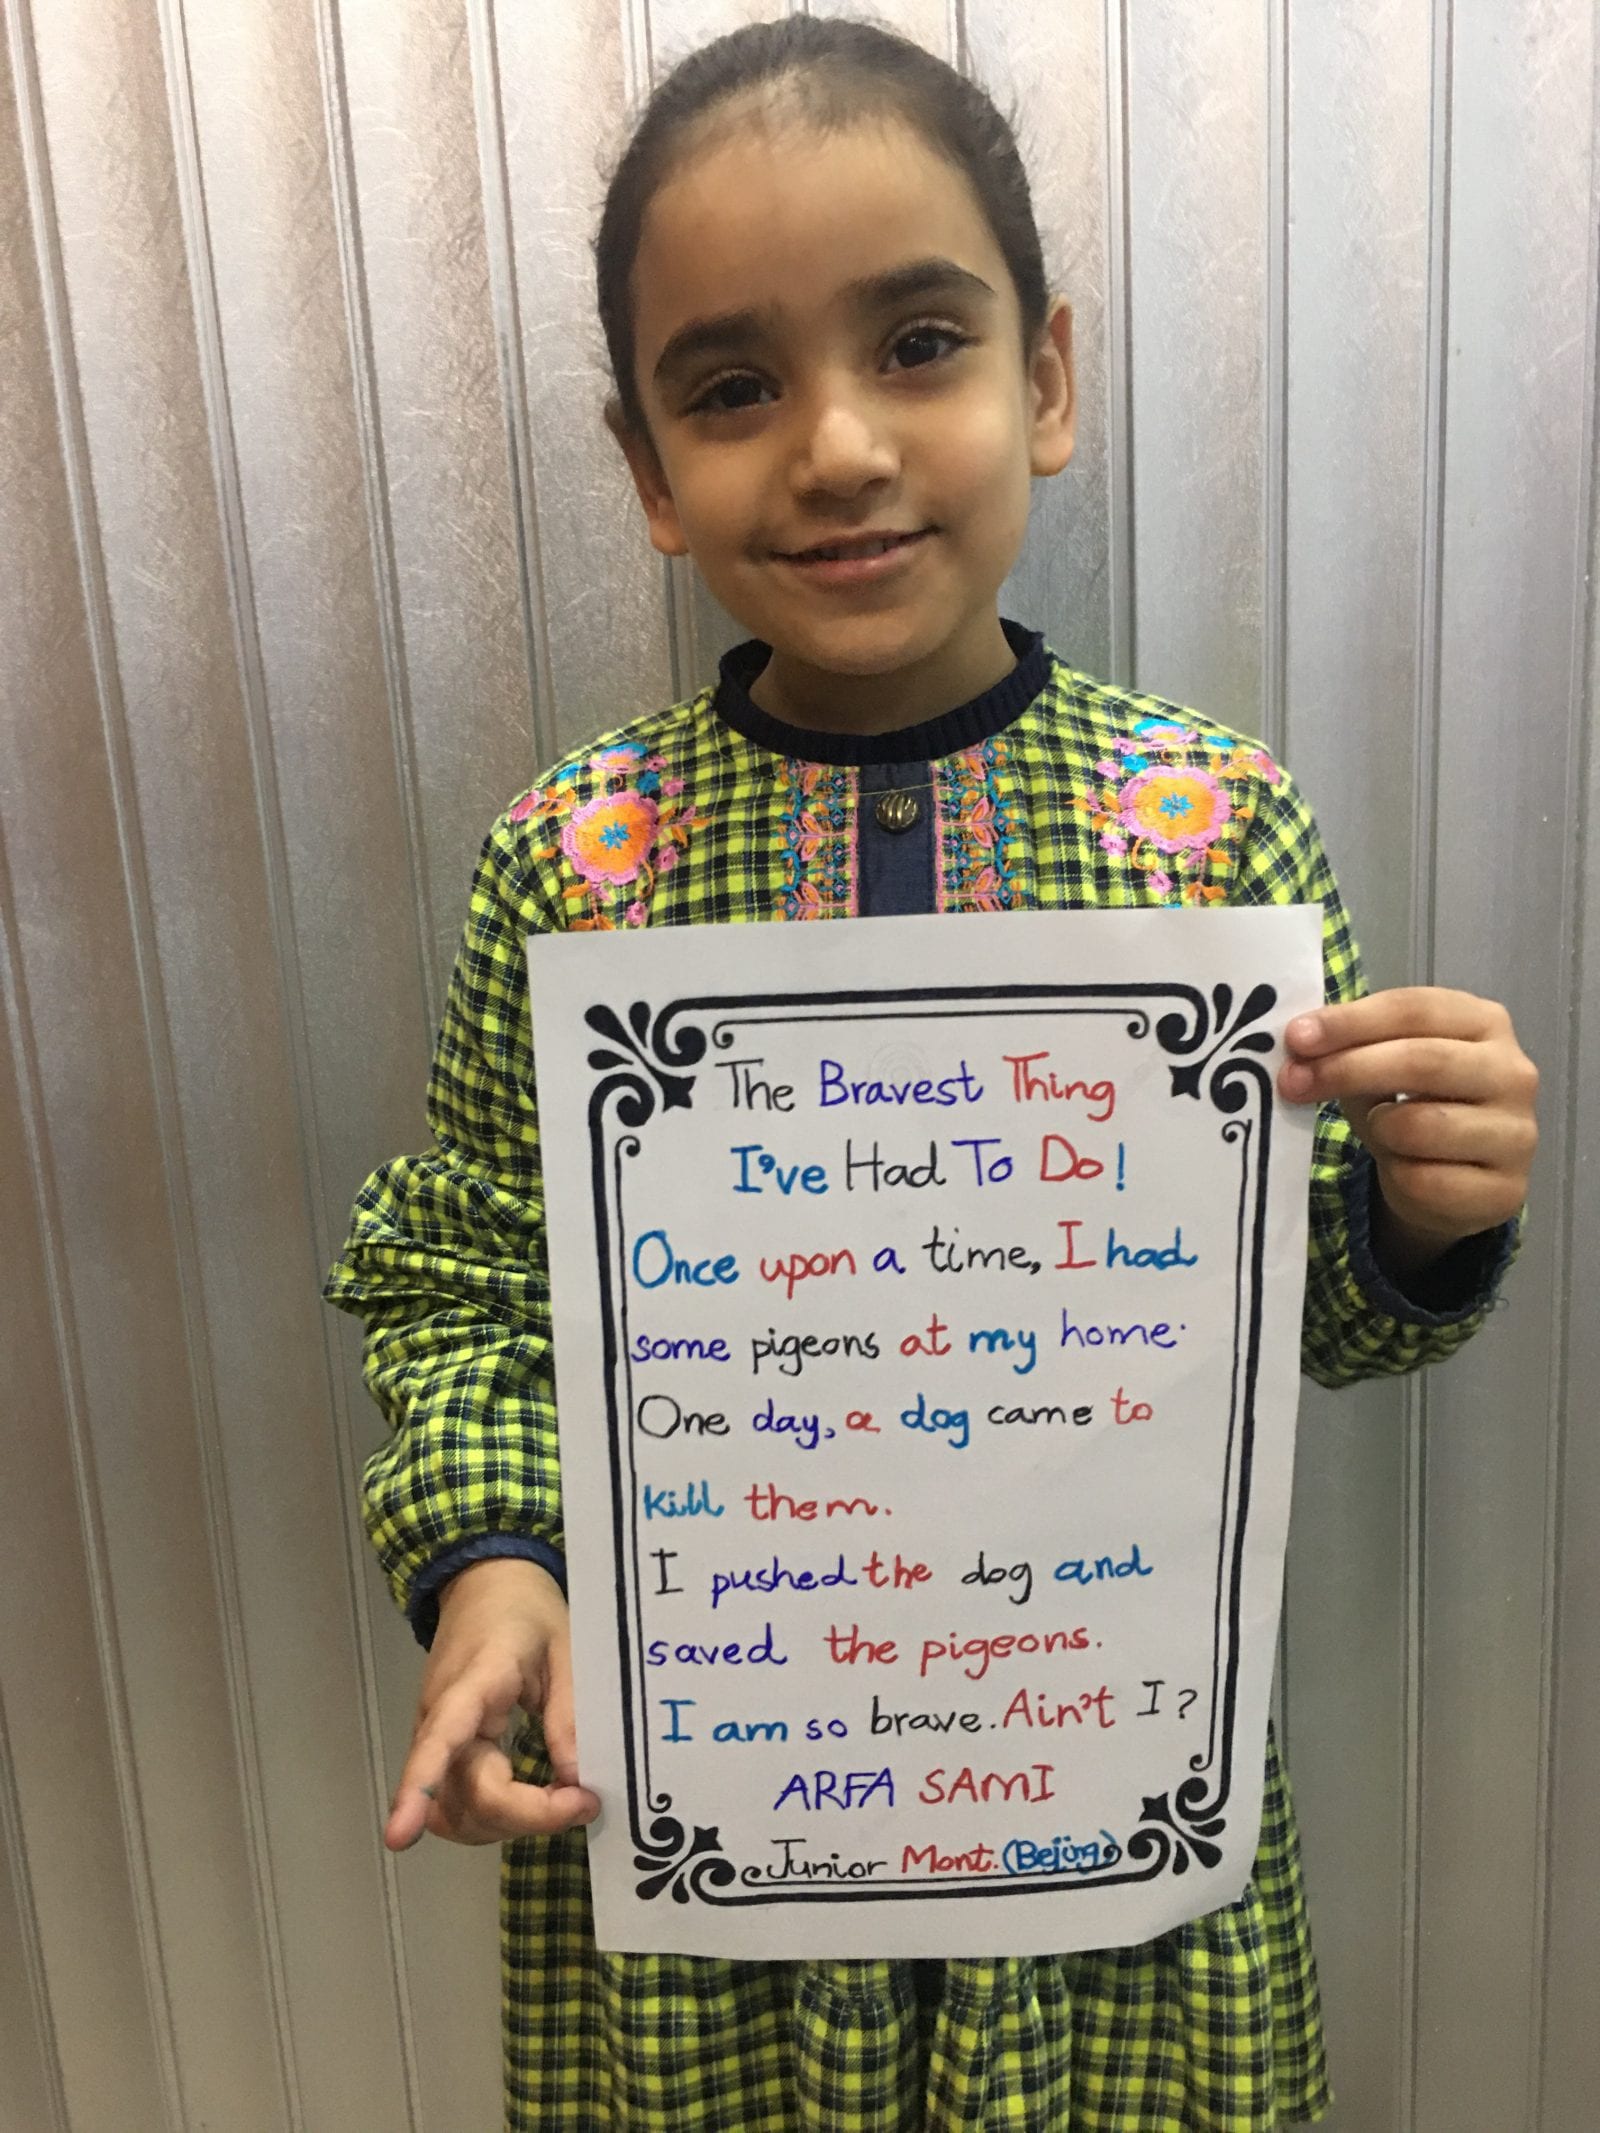 The Bravest Thing
I've Had To Do!
Once upon a time, I had
some pigeons at my home.
One day, a dog came to
kill them.
I pushed the dog and
saved the pigeons.
I am so brave. Ain't I?
ARFA SAMI
Junior Mont. (Bejing)